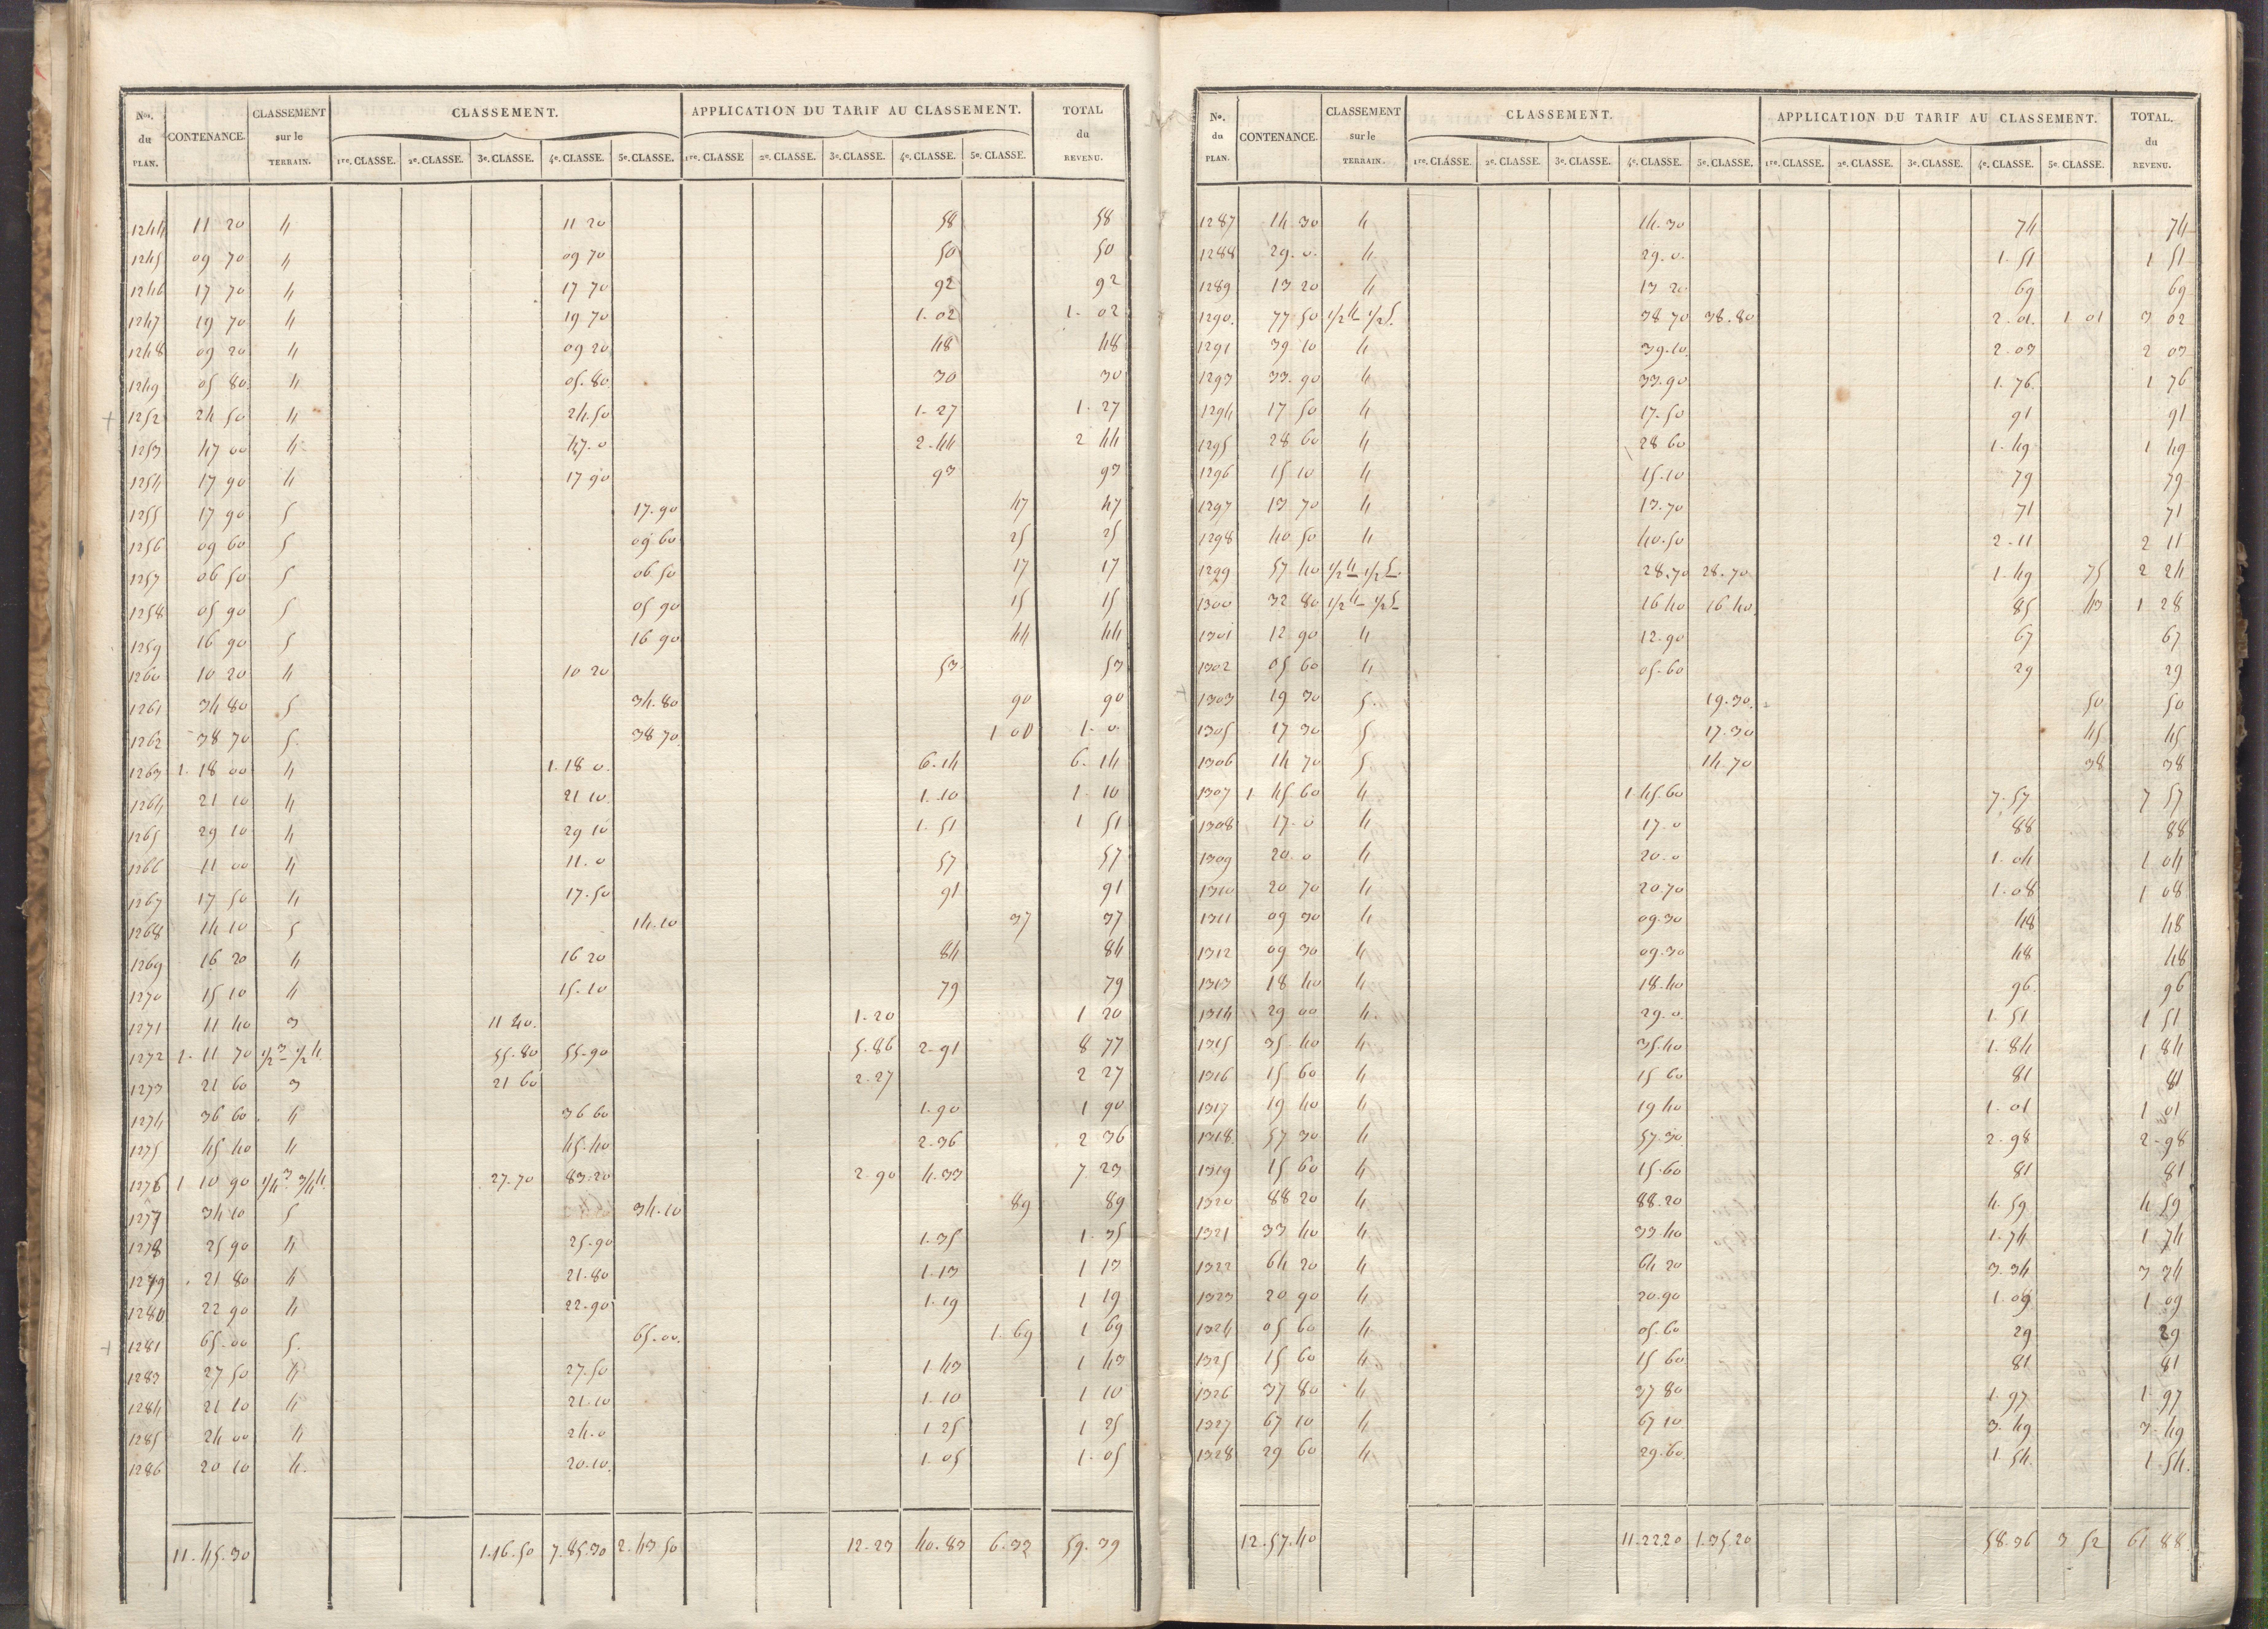 Nos. du PLAN. CONTENANCE. CLASSEMENT sur le TERRAIN. CLASSEMENT. APPLICATION DU TARIF AU CLASSEMENT. TOTAL du REVENU.
1re. CLASSE. 2e. CLASSE. 3e. CLASSE. 4e. CLASSE. 5e. CLASSE. 1re. CLASSE 2e. CLASSE. 3e. CLASSE. 4e. CLASSE. 5e. CLASSE.
1244 11 20 4 11 20 58 58
1245 09 70 4 09 70 50 50
1246 17 70 4 17 70 92 92
1247 19 70 4 19 70 1. 02 1. 02
1248 09 20 4 09 20 48 48
1249 05 80 4 05. 80 30 30
+ 1252 24 50 4 24. 50 1. 27 1. 27
1253 47 00 4 47. 0 2. 44 2 44
1254 17 90 4 17 90 93 93
1255 17 90 5 17. 90 47 47
1256 09 60 5 09 60 25 25
1257 06 50 5 06 50 17 17
1258 05 90 5 05 90 15 15
1259 16 90 5 16 90 44 44
1260 10 20 4 10 20 53 53
1261 34 80 5 34. 80 90 90
1262 38 70 5. 38 70. 1 00 1. 0.
1263 1. 18 00 4 1. 18 0. 6. 14 6. 14
1264 21 10 4 21 10. 1. 10 1. 10
1265 29 10 4 29 10 1. 51 1 51
1266 11 00 4 11. 0 57 57
1267 17 50 4 17. 50 91 91
1268 14 10 5 14. 10 37 37
1269 16 20 4 16 20 84 84
1270 15 10 4 15. 10 79 79
1271 11 40 3 11 40. 1. 20 1 20
1272 1. 11 70 1/2 3 - 1/2 4. 55. 80 55. 90 5. 86 2. 91 8 77
1273 21 60 3 21 60 2. 27 2 27
1274 36 60 4 36 60 1. 90 1 90
1275 45 40 4 45. 40 2. 36 2 36
1276 1 10 90 1/4 3 - 3/4 4. 27. 70 83. 20 2. 90 4. 33 7. 23
1277 34 10 5 34. 10 89 89
1278 25 90 4 25. 90 1. 35 1. 35
1279 21 80 4 21. 80 1. 13 1 13
1280 22 90 4 22. 90 1. 19 1 19
+ 1281 65. 00 5. 65. 00. 1. 69 1 69
1283 27 50 4 27. 50 1 43 1 43
1284 21 10 4 21. 10 1. 10 1 10
1285 24 00 4 24. 0 1 25 1 25
1286 20 10 4. 20. 10. 1. 05 1. 05
11. 45. 30 1. 16. 50 7. 85. 30 2. 43 50 12. 23 40. 83 6. 32 59. 39
No. du PLAN. CONTENANCE. CLASSEMENT sur le TERRAIN. CLASSEMENT. APPLICATION DU TARIF AU CLASSEMENT. TOTAL. du REVENU.
1re. CLASSE. 2e. CLASSE. 3e. CLASSE. 4e. CLASSE. 5e. CLASSE. 1re. CLASSE. 2e. CLASSE. 3e. CLASSE. 4e. CLASSE. 5e. CLASSE.
1287 14 30 4 14. 30 74 74
1288 29. 0. 4. 29. 0. 1. 51 1 51
1289 13 20 4 13 20 69 69
1290. 77 50 1/2 4 - 1/2 5. 38 70 38. 80 2. 01. 1 01 3 02
1291 39 10 4 39. 10. 2. 03 2 03
1293 33. 90 4 33. 90 1. 76. 1 76
1294 17 50 4 17. 50 91 91
1295 28 60 4 28 60 1. 49 1 49
1296 15 10 4 15. 10 79 79
1297 13 70 4 13. 70 71 71
1298 40 50 4 40. 50 2. 11 2 11
1299 57 40 1/2 4 - 1/2 5. 28. 70 28. 70 1. 49 75 2 24
1300 32 80 1/2 4 - 1/2 5 16 40 16 40. 85 43 1 28
1301 12 90 4 12. 90 67 67
1302 05 60 4 05. 60 29 29
+ 1303 19 30 5. 19. 30. 50 50
1305 17 30 5 17. 30 45 45
1306 14 70 5 14. 70 38 38
1307 1 45 60 4 1 45. 60 7. 57 7 57
1308 17. 0 4 17. 0 88 88
1309 20. 0 4 20. 0 1. 04 1 04
1310 20 70 4 20. 70 1. 08 1 08
1311 09 30 4 09. 30 48 48
1312 09 30 4 09. 30 48 48
1313 18 40 4 18. 40 96. 96
1314 29 00 4. 29. 0. 1. 51 1 51
1315 35. 40 4 35. 40 1. 84 1 84
1316 15 60 4 15 60 81 81
1317 19 40 4 19 40 1. 01 1 01
1318. 57 30 4 57. 30. 2. 98 2. 98
1319 15 60 4 15. 60 81 81
1320 88 20 4 88. 20 4. 59 4 59
1321 33 40 4 33. 40 1. 74 1 74
1322 64 20 4 64 20 3. 34 3 34
1323 20 90 4 20. 90 1. 09 1 09
1324 05 60 4 05. 60 29 29
1325 15 60 4 15 60 81 81
1326 37 80 4 37 80 1. 97 1. 97
1327 67 10 4 67 10 3. 49 3. 49
1328 29 60 4 29. 60. 1. 54. 1. 54.
12. 57. 40 11. 22 20 1. 35 20 58. 36 3 52 61 88